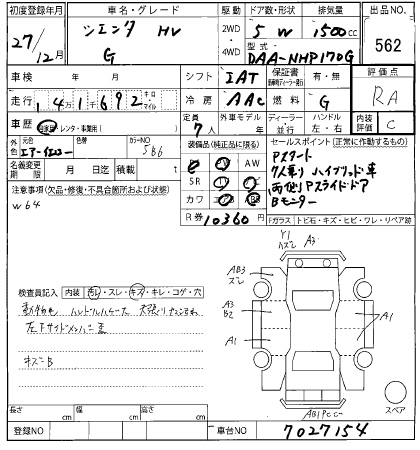 初度登録年月 車名・グレード 駆動 ドア数・形状 排気量 出品NO.
27/12月 シエンタ HV G 2WD・4WD 5 W 1500cc 562
型式 DAA-NHP170G
車検 年 月 シフト IAT 保証書 有・無 評価点
走行 141692 キロ マイル 冷房 AAC 燃料 G RA
車歴 自家用・レンタ・事業用( ) 定員 7人 外車モデル 年 ディーラー・並行 ハンドル 左・右 内装評価 C
外色 元色 エアーイエロー 色替 カラーNO 5B6 装備品(純正品に限る) セールスポイント(正常に作動するもの)
名義変更期限 月 日迄 積載 t
PS PW AW
SR
カワ
R券 10360円
Pスタート
7人乗り ハイブリッド車
両側Pスライドドア
Bモニター
Fガラス トビ石・キズ・ヒビ・ワレ・リペア跡
注意事項(欠品・修復・不具合箇所および状態)
W64
検査員記入 内装 ヨゴレ・スレ・キズ・キレ・コゲ・穴
左Fサイドメンバー
キズ・B
Y1 A3
AB3
A3
B2
A1
A1
スペア
長さ cm 幅 cm 高さ cm
登録NO 車台NO 7027154